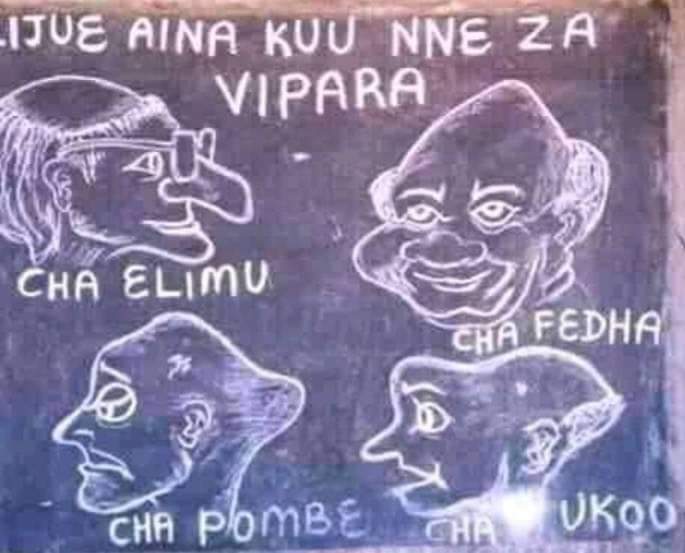 LIJUE AINA KUU NNE ZA
VIPARA
CHA ELIMU
CHA FEDHA
CHA POMBE
CHA UKOO